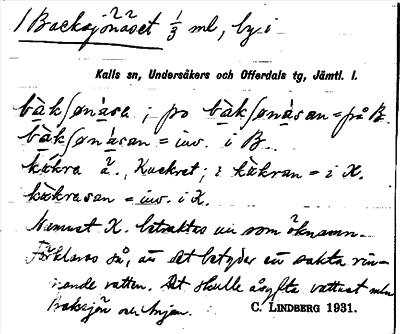 1 Backsjönäset 1/3 ml, by i
Kalls sn, Undersåkers och Offerdals tg, Jämtl. l.
bàkʃønä̀sa ; po bàkʃønä̀san = på B.
bàkʃønä̀san = inv. i B.
kø̀kra Kuckret; i kø̀kran = i K.
kø̀krasan = inv. i K.
Namnet K. betraktas nu som öknamn.
Förklaras så, att det betyder en sakta rin-
nande vatten. Det skulle åsyfta vattnet mellan
Backsjön och Anjan. C. LINDBERG 1931.